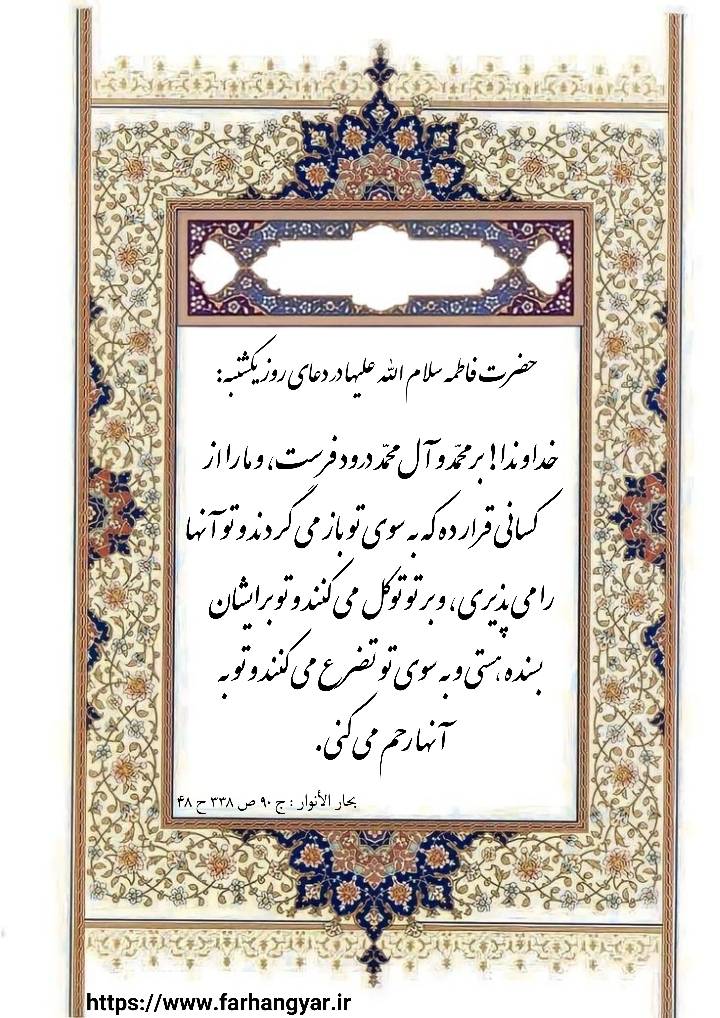 حضرت فاطمه سلام الله علیها در دعای روز یکشنبه:
خداوندا! بر محمّد و آل محمّد درود فرست، و ما را از
کسانی قرار ده که به سوی تو باز می گردند و تو آنها
را می پذیری، و بر تو توکل می کنند و تو برایشان
بسنده هستی و به سوی تو تضرع می کنند و تو به
آنها رحم می کنی.
بحار الأنوار : ج ۹۰ ص ۳۳۸ ح ۴۸
https://www.farhangyar.ir